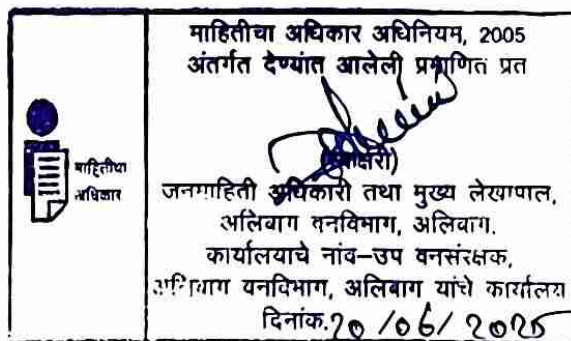 माहितीचा अधिकार अधिनियम, 2005
अंतर्गत देण्यांत आलेली प्रमाणित प्रत
माहितीचा
अधिकार
जनमाहिती अधिकारी तथा मुख्य लेखापाल,
अलिबाग वनविभाग, अलिबाग.
कार्यालयाचे नांव-उप वनसंरक्षक,
अलिबाग वनविभाग, अलिबाग यांचे कार्यालय
दिनांक.